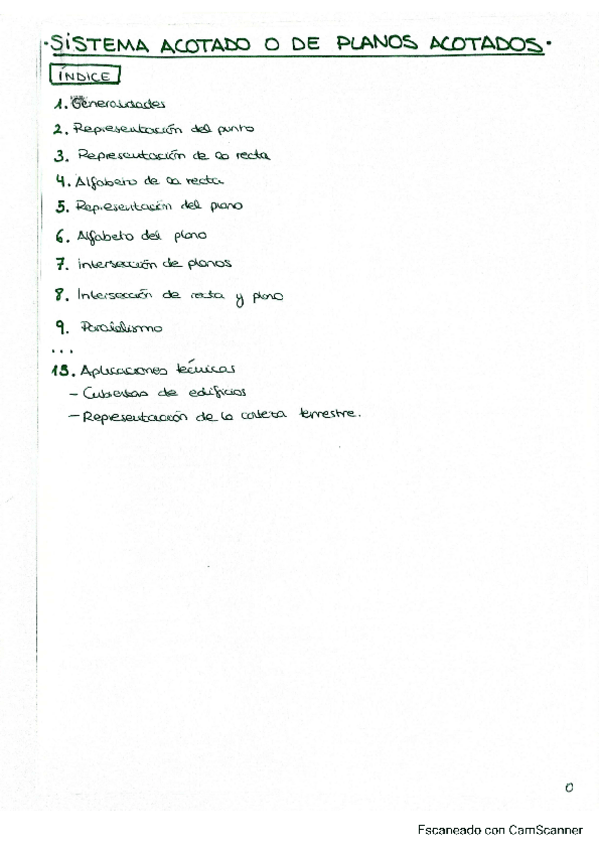 ·SISTEMA ACOTADO O DE PLANOS ACOTADOS·
ÍNDICE
1. Generalidades
2. Representación del punto
3. Representación de la recta
4. Alfabeto de la recta
5. Representación del plano
6. Alfabeto del plano
7. intersección de planos
8. Intersección de recta y plano
9. Paralelismo
...
13. Aplicaciones técnicas
- Cubiertas de edificios
- Representación de la corteza terrestre.
0
Escaneado con CamScanner